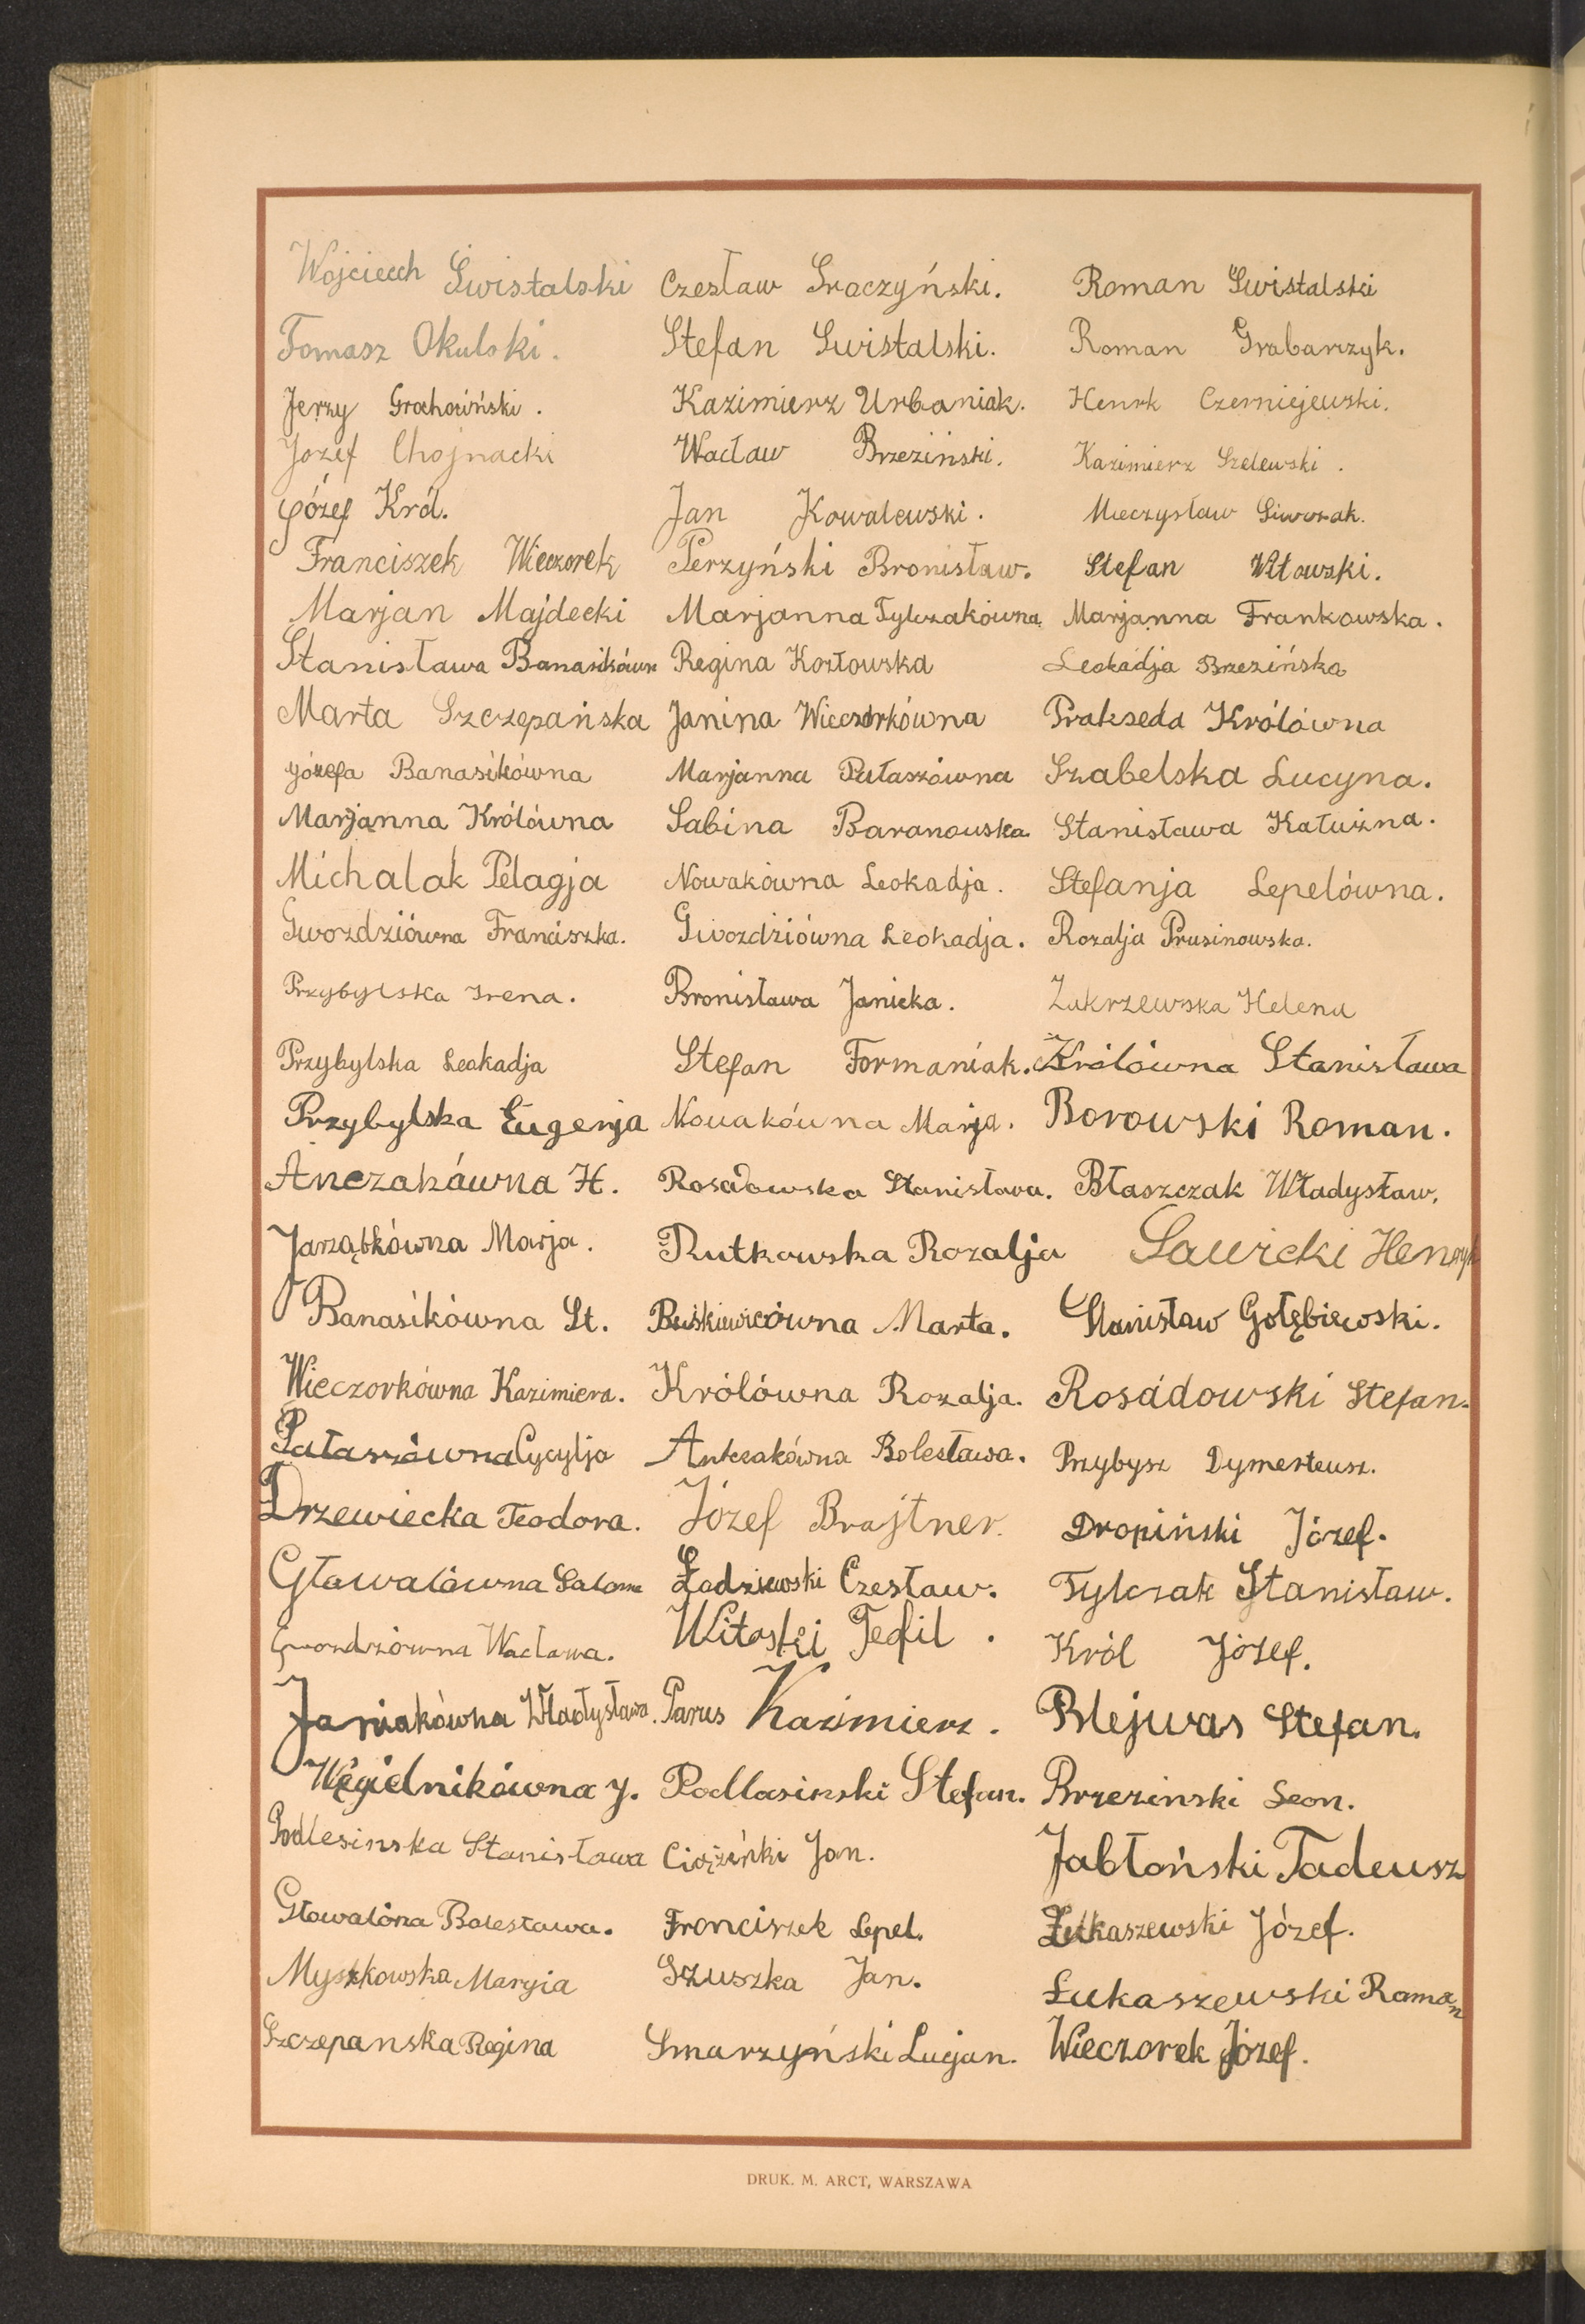 Wojciech Świstalski Czesław Sraczyński. Roman Swistalski
Tomasz Okulski. Stefan Swistalski. Roman Grabarczyk.
Jerzy Grochociński. Kazimierz Urbaniak. Henrk Czerniejewski.
Jozef Chojnacki Wacław Brzeziński. Kazimierz Szelewski.
Józef Król. Jan Kowalewski. Mieczysław Siwczak.
Franciszek Wieczorek Perzyński Bronisław. Stefan Witowski.
Marjan Majdecki Marjanna Tylczakówna Marjanna Frankowska.
Stanisława Banasikówn Regina Kozłowska Leokadja Brzezińska
Marta Szczepańska Janina Wieczorkówna Prakseda Królówna
Józefa Banasikówna Marjanna Pałaszówna Szabelska Lucyna.
Marjanna Królówna Sabina Baranowska Stanisława Kałużna.
Michalak Pelagja Nowakówna Leokadja. Stefanja Lepelówna.
Gwozdziówna Franciszka. Gwozdziówna Leokadja. Rozalja Prusinowska.
Przybylska Irena. Bronisława Janicka. Zakrzewska Helena
Przybylska Leokadja Stefan Formaniak. Królówna Stanisława
Przybylska Eugenja Nowakówna Marja. Borowski Roman.
Anczakówna H. Rosadowska Stanisława. Błaszczak Władysław.
Jarząbkówna Marja. Rutkowska Rozalja Sawicki Henryk
Banasikówna St. Marta. Stanisław Gołębiewski.
Wieczorkówna Kazimiera. Królówna Rozalja. Rosadowski Stefan.
Pałaszówna Cycylja Antczakówna Bolesława. Przybysz Dymerteusz.
Drzewiecka Teodora. Józef Brajtner. Dropiński Józef.
Gławalówna Salome Ładziewski Czesław. Tylczak Stanisław.
Gwozdziówna Wacława. Witoski Teofil. Król Józef.
Janiakówna Władysława. Parus Kazimierz. Blejwas Stefan.
Węgielnikówna J. Podlasinski Stefan. Brzezinski Leon.
Podlesinska Stanisława Ciążeński Jan. Jabłoński Tadeusz
Gławalóna Bolesława. Franciszek Lepel. Łukaszewski Józef.
Myszkowska Maryia Szuszka Jan. Łukaszewski Roman
Szczepanska Regina Smarzyński Lucjan. Wieczorek Józef.
DRUK. M. ARCT, WARSZAWA